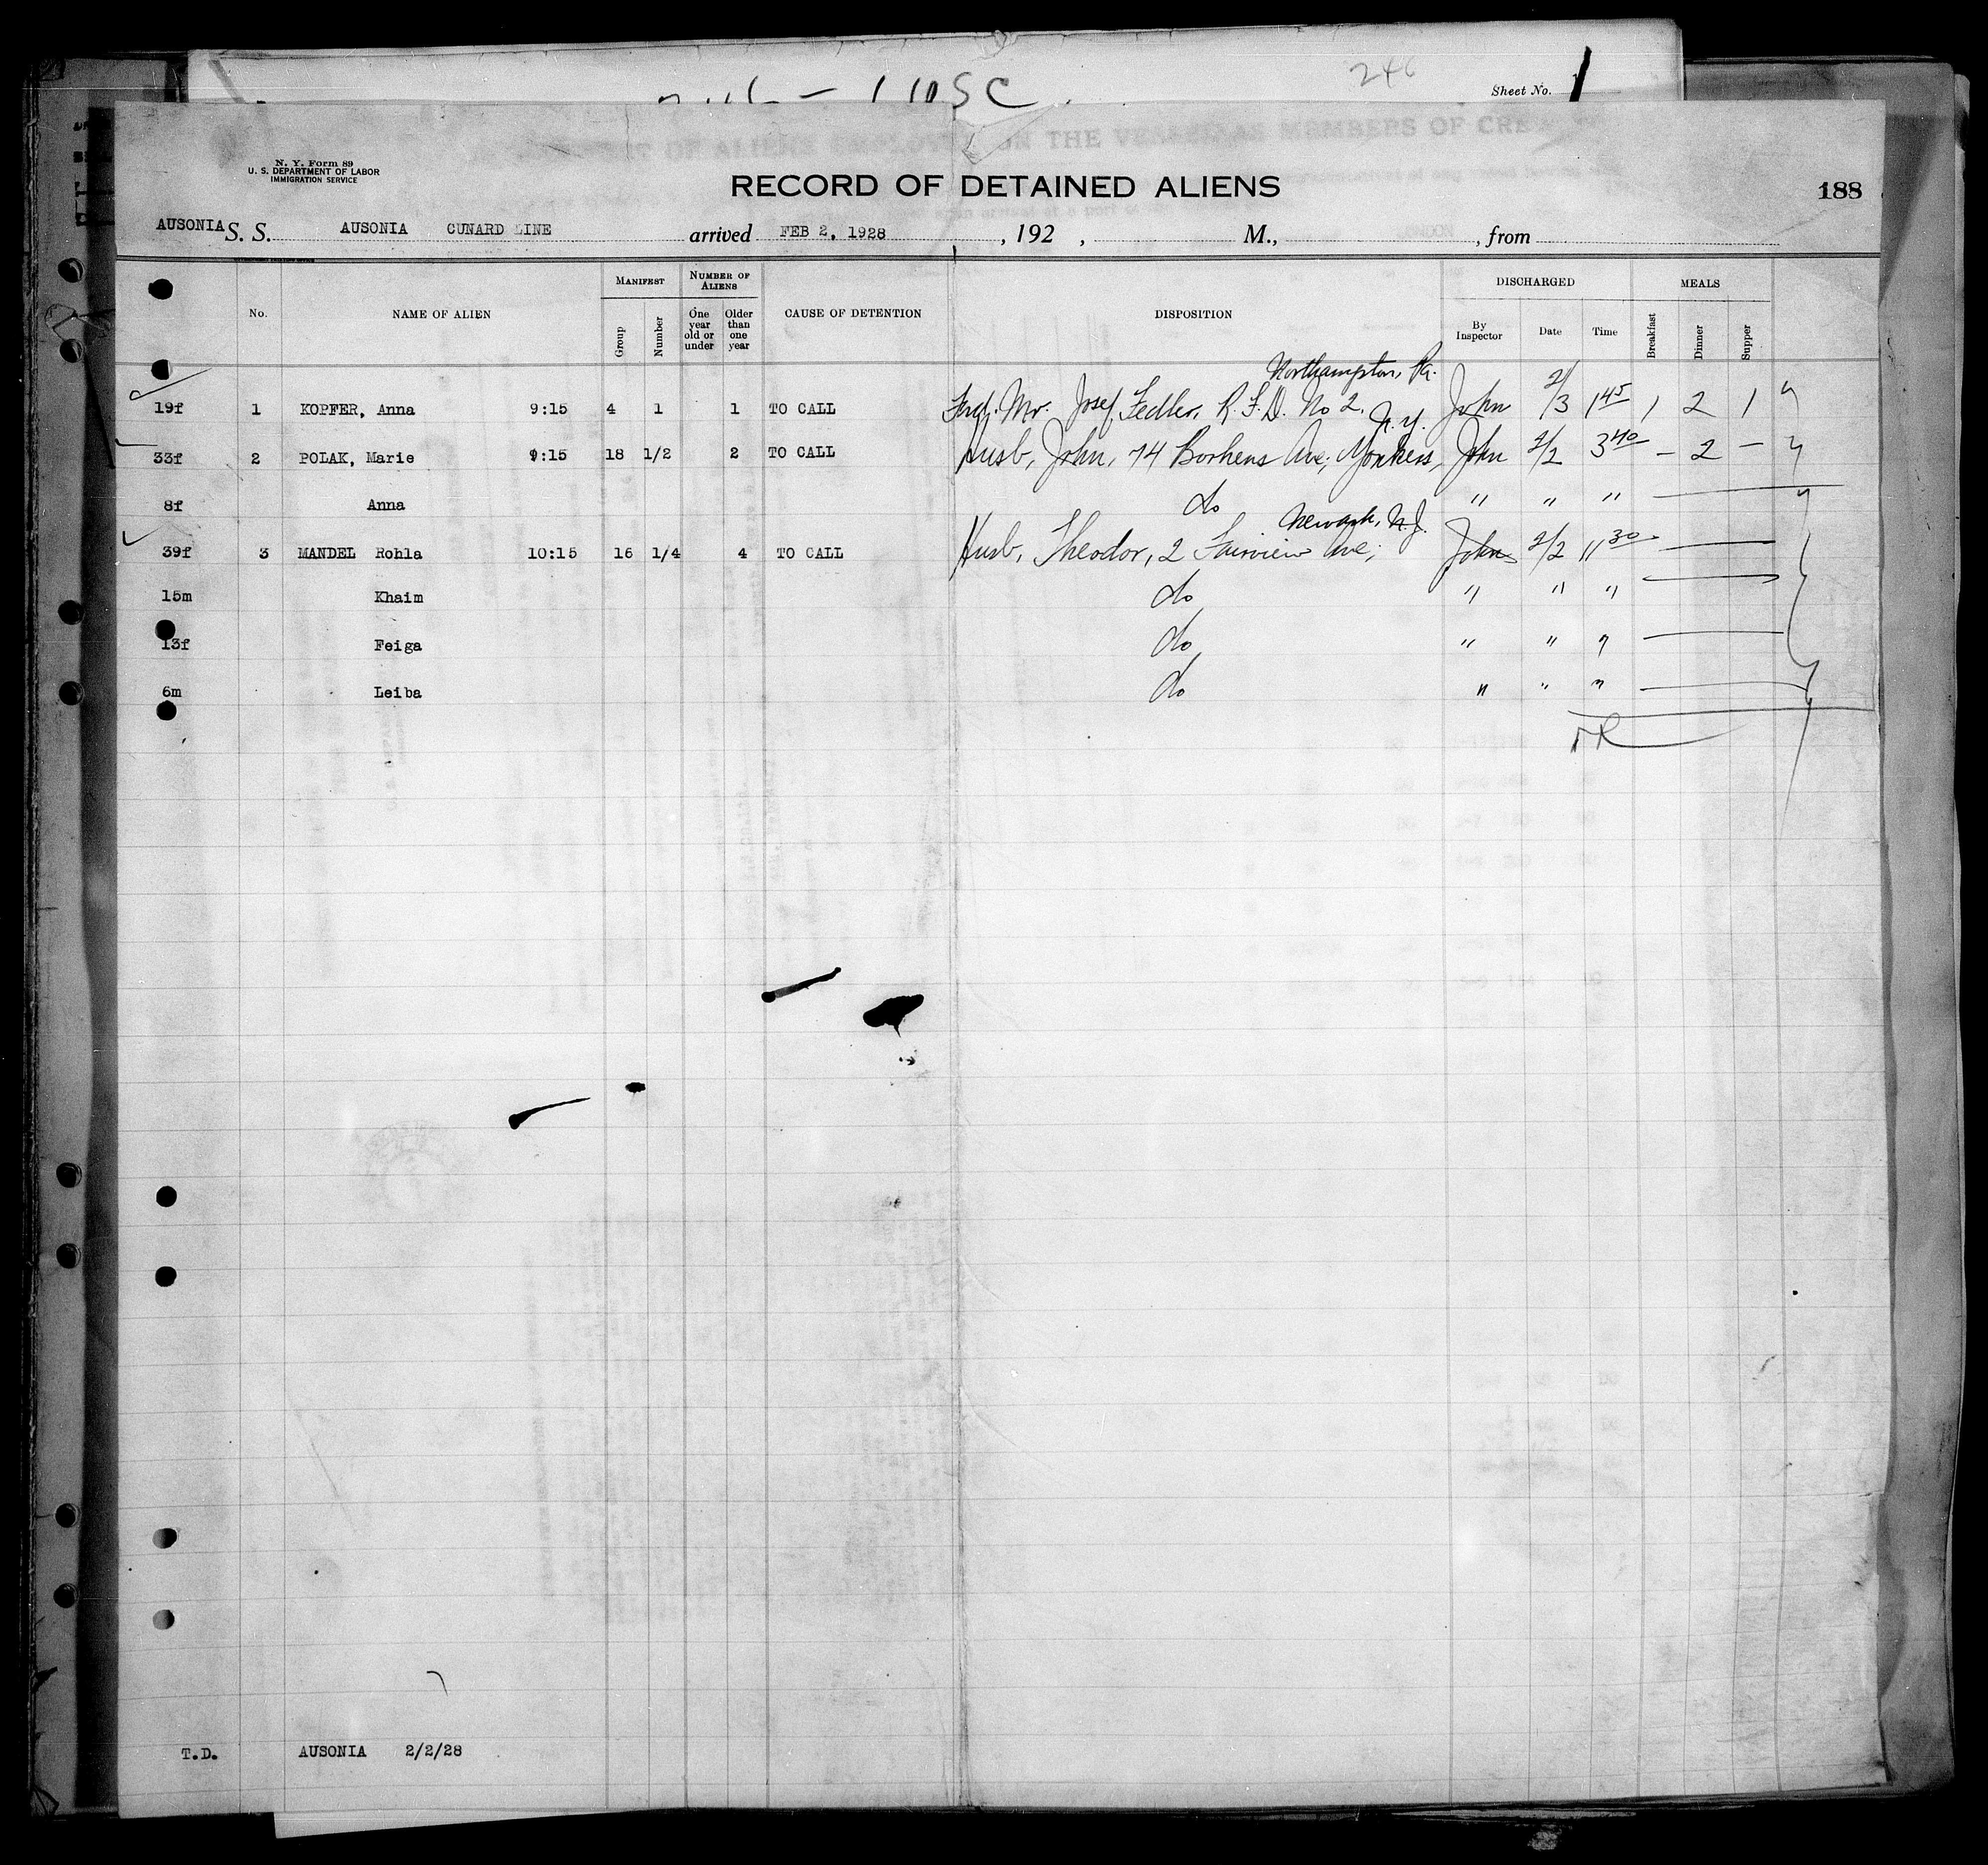 246
Sheet No. 1
N. Y. Form 89
U. S. DEPARTMENT OF LABOR
IMMIGRATION SERVICE
RECORD OF DETAINED ALIENS
188
AUSONIA S. S. AUSONIA CUNARD LINE arrived FEB 2, 1928 , 192 , M., , from
No. NAME OF ALIEN MANIFEST Group Number NUMBER OF ALIENS One year old or under Older than one year CAUSE OF DETENTION DISPOSITION DISCHARGED By Inspector Date Time MEALS Breakfast Dinner Supper
Northampton, Pa.
19f 1 KOPFER, Anna 9:15 4 1 1 TO CALL Mr. Josef Fedler, R.F.D. No 2, John 2/3 1 45 1 2 1
N.Y.
33f 2 POLAK, Marie 9:15 18 1/2 2 TO CALL Husb, John, 74 Ave; Yonkers, John 2/2 3 40 – 2 –
8f Anna do " " "
Newark, N.J.
39f 3 MANDEL Rohla 10:15 16 1/4 4 TO CALL Husb, Theodor, 2 Fairview Ave; John 2/2 11 30
15m Khaim do " " "
13f Feiga do " " "
6m Leiba do " " "
T.D. AUSONIA 2/2/28